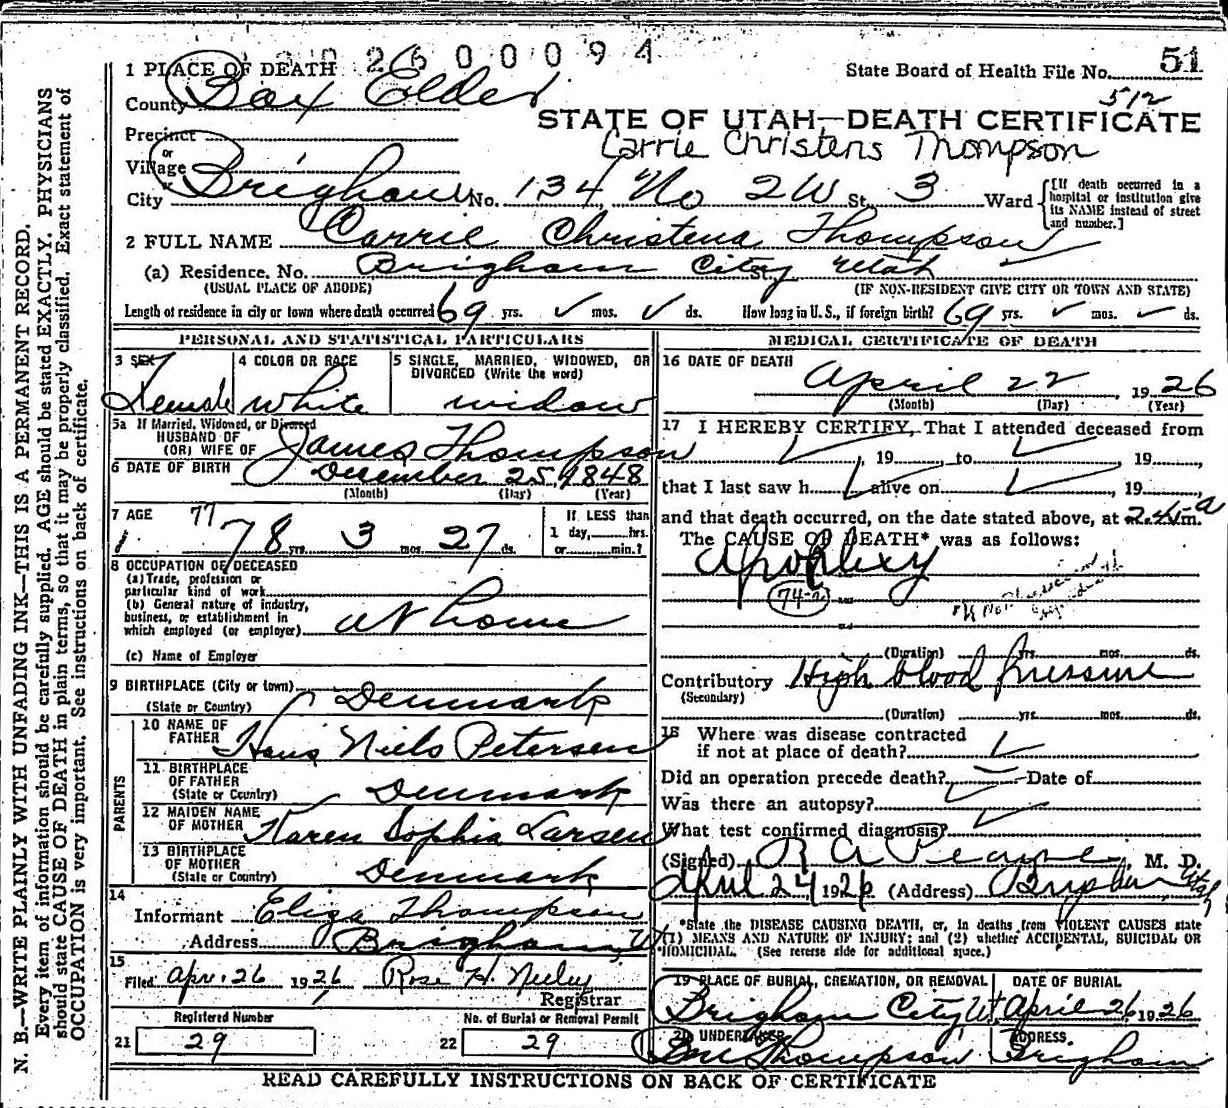 2600094
1 PLACE OF DEATH
State Board of Health File No. 51
512
County Box Elder
STATE OF UTAH—DEATH CERTIFICATE
Carrie Christens Thompson
Precinct
or
Village
or
City Brigham No. 134 No 2W St. 3 Ward
[If death occurred in a hospital or institution give its NAME instead of street and number.]
2 FULL NAME Carrie Christena Thompson
(a) Residence, No. Brigham City Utah
(USUAL PLACE OF ABODE) (IF NON-RESIDENT GIVE CITY OR TOWN AND STATE)
Length of residence in city or town where death occurred 69 yrs. mos. ds. How long in U. S., if foreign birth? 69 yrs. mos. ds.
PERSONAL AND STATISTICAL PARTICULARS
3 SEX
Female
4 COLOR OR RACE
White
5 SINGLE, MARRIED, WIDOWED, OR
DIVORCED (Write the word)
widow
5a If Married, Widowed, or Divorced
HUSBAND OF
(OR) WIFE OF James Thompson
6 DATE OF BIRTH December 25, 1848
(Month) (Day) (Year)
7 AGE
77
78 yrs. 3 mos. 27 ds.
If LESS than
1 day, hrs.
or min.?
8 OCCUPATION OF DECEASED
(a) Trade, profession or
particular kind of work
(b) General nature of industry,
business, or establishment in
which employed (or employer) at home
(c) Name of Employer
9 BIRTHPLACE (City or town)
(State or Country) Denmark
PARENTS
10 NAME OF
FATHER Hans Niels Petersen
11 BIRTHPLACE
OF FATHER
(State or Country) Denmark
12 MAIDEN NAME
OF MOTHER Karen Sophia Larsen
13 BIRTHPLACE
OF MOTHER
(State or Country) Denmark
14
Informant Eliza Thompson
Address Brigham, Ut
15
Filed Apr. 26 1926 Rose H. Neeley
Registrar
Registered Number
21 29
No. of Burial or Removal Permit
22 29
MEDICAL CERTIFICATE OF DEATH
16 DATE OF DEATH
April 22 1926
(Month) (Day) (Year)
17 I HEREBY CERTIFY, That I attended deceased from
, 19 , to , 19 ,
that I last saw h alive on , 19 ,
and that death occurred, on the date stated above, at m.
The CAUSE OF DEATH* was as follows:
Apoplexy
74-2
(Duration) yrs. mos. ds.
Contributory High blood pressure
(Secondary)
(Duration) yrs. mos. ds.
18 Where was disease contracted
if not at place of death?
Did an operation precede death? Date of
Was there an autopsy?
What test confirmed diagnosis?
(Signed) R A Pearse, M. D.
April 24, 1926 (Address) Brigham Utah
*State the DISEASE CAUSING DEATH, or, in deaths from VIOLENT CAUSES state
(1) MEANS AND NATURE OF INJURY; and (2) whether ACCIDENTAL, SUICIDAL OR
HOMICIDAL. (See reverse side for additional space.)
19 PLACE OF BURIAL, CREMATION, OR REMOVAL
Brigham City Ut
DATE OF BURIAL
April 26 1926
20 UNDERTAKER
Thompson
ADDRESS.
Brigham
READ CAREFULLY INSTRUCTIONS ON BACK OF CERTIFICATE
N. B.—WRITE PLAINLY WITH UNFADING INK—THIS IS A PERMANENT RECORD.
Every item of information should be carefully supplied. AGE should be stated EXACTLY. PHYSICIANS
should state CAUSE OF DEATH in plain terms, so that it may be properly classified. Exact statement of
OCCUPATION is very important. See instructions on back of certificate.